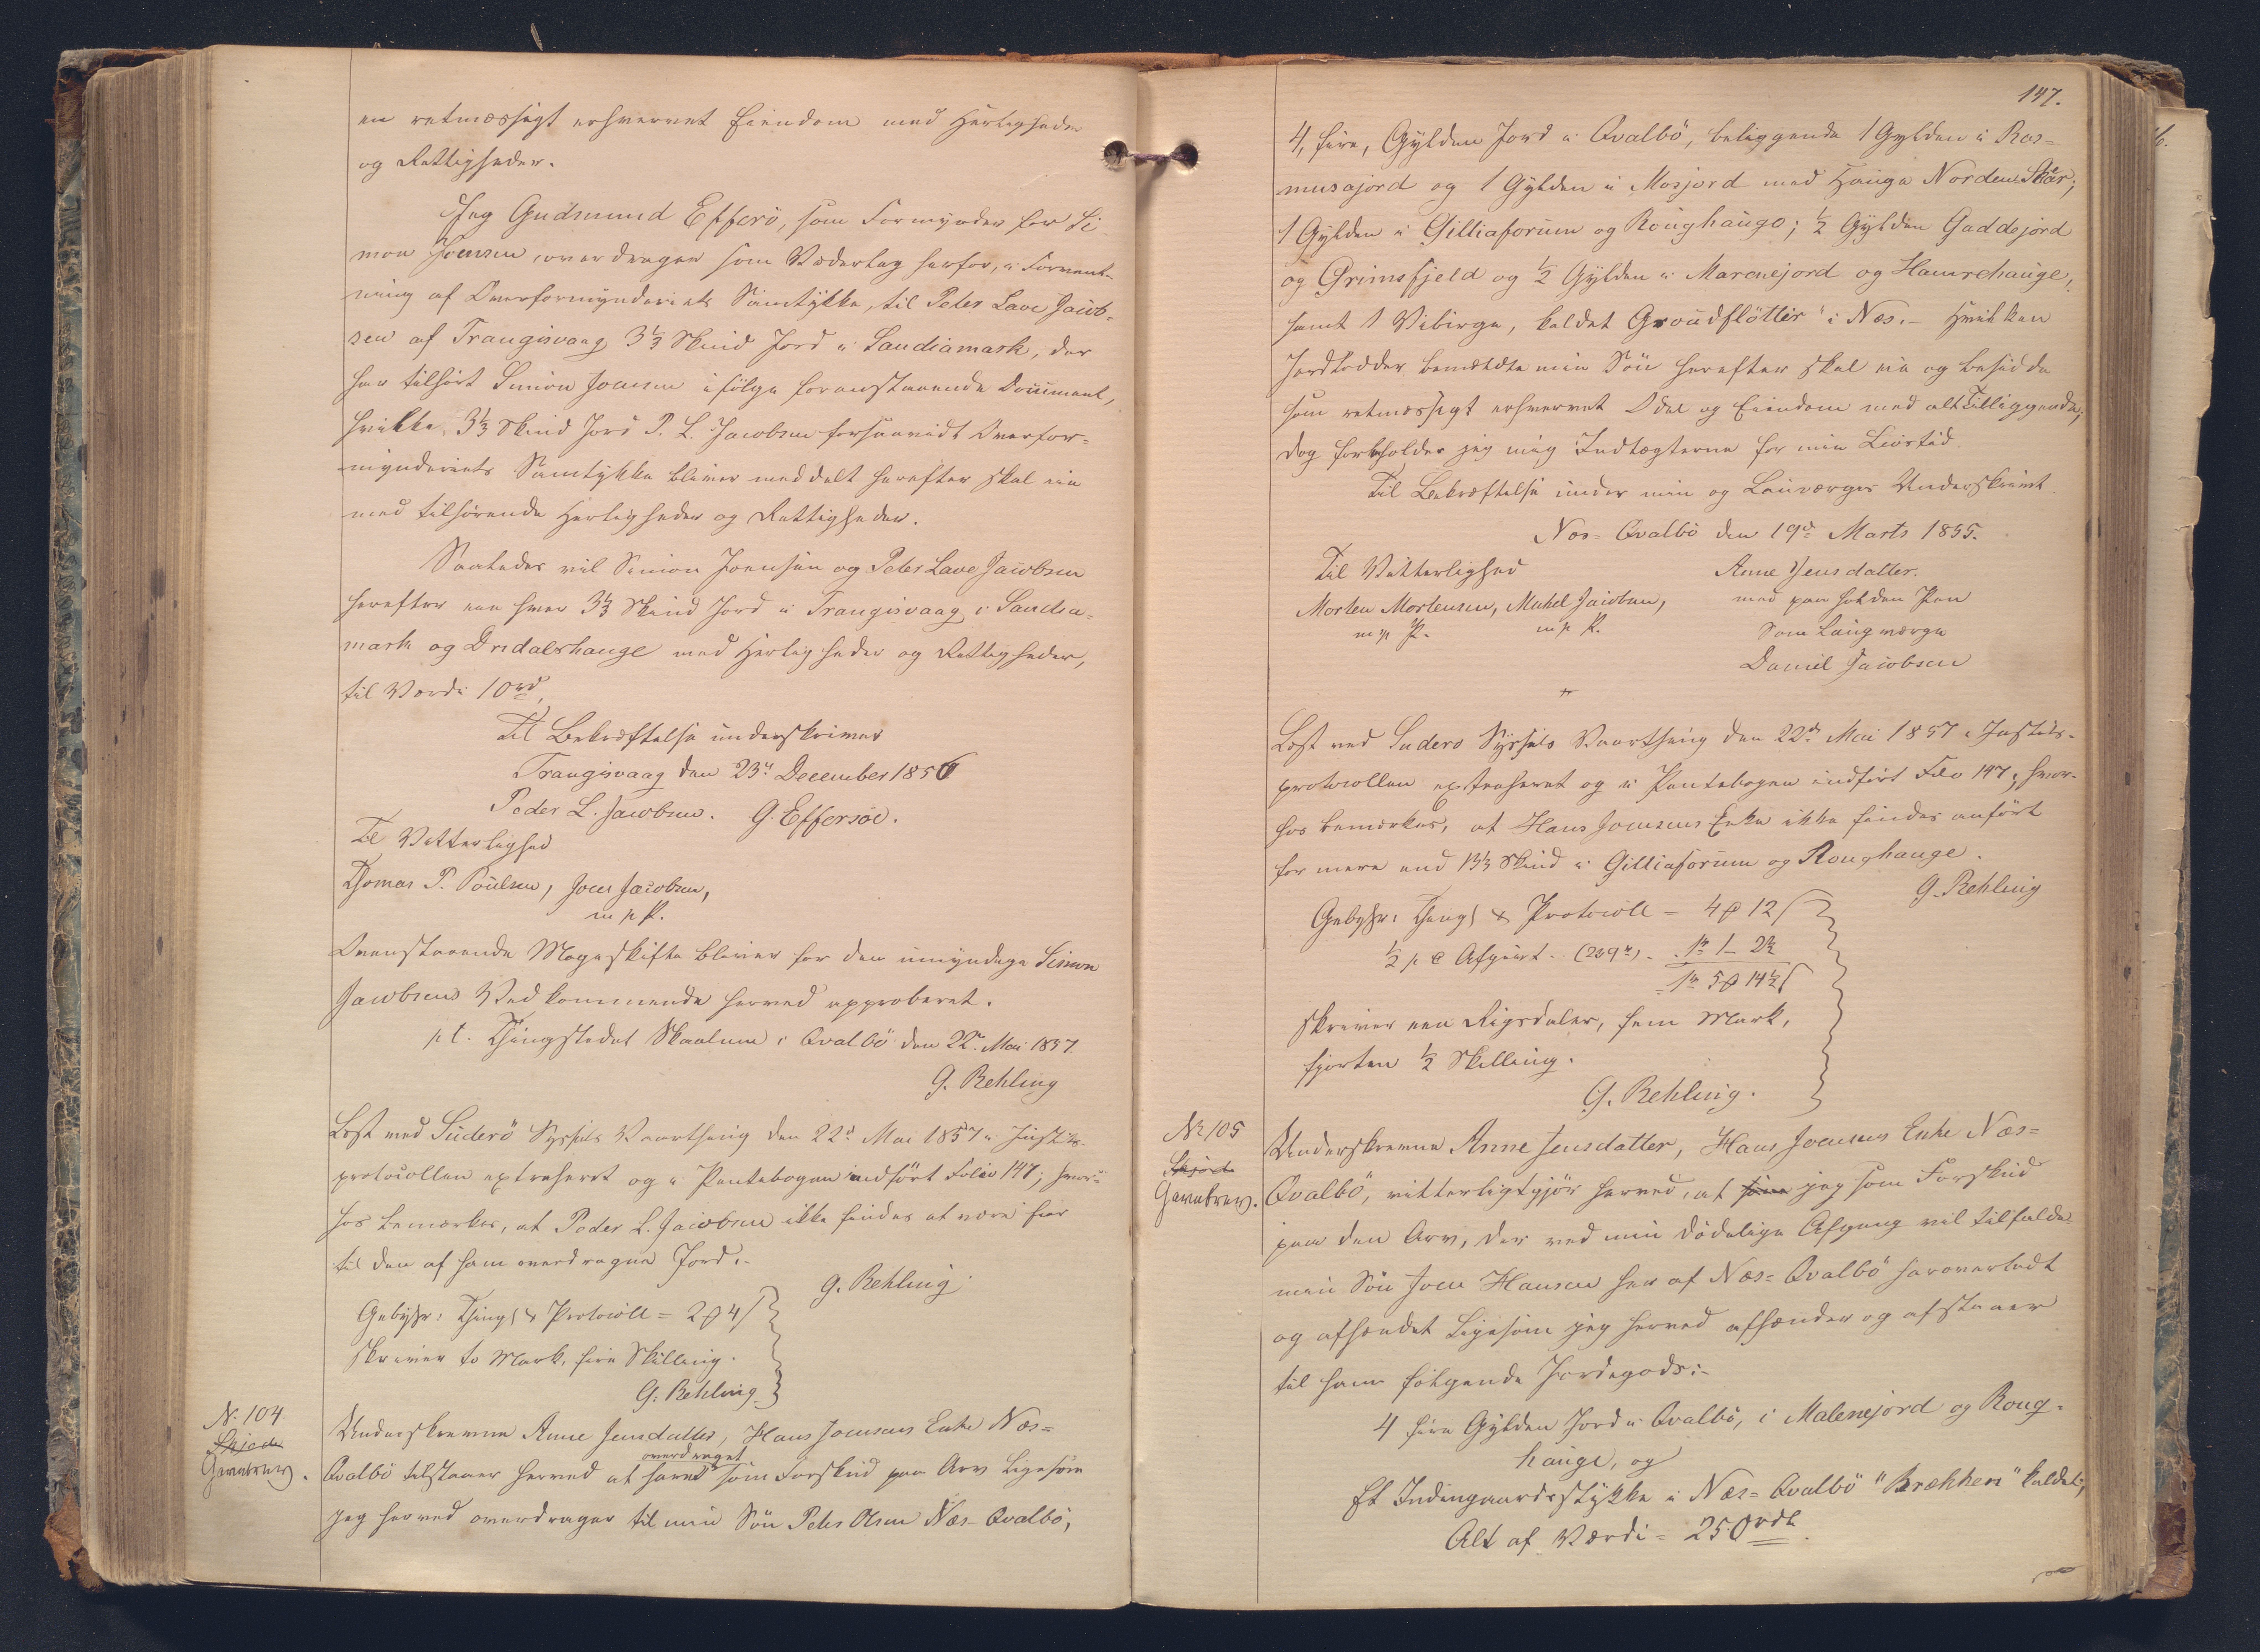 en retmæssigt erhvervet Eiendom med Herligheder
og Rettigheder.
Jeg Gudmund Effersö, som Formynder for Si-
mon Joensen overdrager som Vederlag herfor, i Forvent-
ning af Overformynderiets Samtykke, til Peter Lave Jacob-
sen af Trangisvaag 3⅓ Skind Jord i Landiamark, der
har tilhört Simon Joensen ifölge foranstaaende Document,
hvilke 3⅓ Skind Jord P. L. Jacobsen forsaavidt Overfor-
mynderiets Samtykke bliver meddelt herefter skal eie
med tilhörende Herligheder og Rettigheder.
Saaledes vil Simon Joensen og Peter Lave Jacobsen
herefter eie hver 3⅓ Skind Jord i Trangisvaag i Landia-
mark og Drdalshauge med Herligheder og Rettigheder,
til Værdi 10 rd,
Til Bekræftelse underskriver
Trangisvaag den 23d December 1856
Peder L. Jacobsen. G. Effersöe.
Til Vitterlighed
Thomas P. Poulsen, Joen Jacobsen,
m p P.
Ovenstaaende Mageskifte bliver for den umyndige Simon
Jacobsens Vedkommende herved approberet.
p t. Thingstedet Skaalum i Qvalbö den 22d Mai 1857.
G. Rehling
Læst ved Suderö Syssels Vaarthing den 22d Mai 1857 i Justits-
protocollen extraheret og i Pantebogen indfört Folio 147; hvor-
hos bemærkes, at Peder L. Jacobsen ikke findes at være Eier
til den af ham overdragne Jord.-
G. Rehling
Gebyhr: Thingl & Protocoll = 2 ℳ 4 ſ
skriver to Mark, fire Skilling.
G. Rehling
No 104.
Skjöde
Gavebrev.
Underskrevne Anne Jensdatter, Hans Joensens Enke Næs=
overdraget
Qvalbö tilstaaer herved at have som Forskud paa Arv ligesom
jeg herved overdrager til min Sön Peter Olsen Næs-Qvalbö,
147.
4, fire, Gylden Jord i Qvalbö, beliggende 1 Gylden i Ras-
musajord og 1 Gylden i Mosjord med Hauge Norden Skar;
1 Gylden i Gilliaforum og Roughaugo; ½ Gylden Gaddejord
og Grimsfjeld og ½ Gylden i Marenejord og Hamrehauge,
samt 1 Vibirge, kaldet "Groudflötter" i Næs.- Hvilken
Jordlodder bemeldte min Sön herefter skal eie og besidde
som retmæssigt erhvervet Odel og Eiendom med alt Tilliggende,
dog forbeholder jeg mig Indtægterne for min Livstid.
Til Bekræftelse under min og Lauværges Underskrivt
Næs=Qvalbö den 19d Marts 1855.
Til Vitterlighed
Anne Jensdatter.
Morten Mortensen, Michel Jacobsen,
med paaholden Pen
m p P. m p P.
Som Laugværge
Daniel Jacobsen
Læst ved Suderö Syssels Vaarthing den 22d Mai 1857 i Justits-
protocollen extraheret og i Pantebogen indfört Folio 147, hvor-
hos bemærkes, at Hans Joensens Enke ikke findes anfört
for mere end 13⅓ Skind i Gilliaforum og Roughauge.
G. Rehling
Gebyhr: Thingl & Protocoll = 4 ℳ 12 ſ
½ p C Afgivt - (209 rd) - 1 rd 1 - 2½
1 rd 5 ℳ 14½ ſ
skriver een Rigsdaler, fem Mark,
fjorten ½ Skilling.
G. Rehling.
No 105
Skjöde
Gavebrev.
Underskrevne Anne Jensdatter, Hans Joensens Enke Næs=
Qvalbö, vitterligtgjör herved, at som jeg som Forskud
paa den Arv, der ved min dödelige Afgang vil tilfalde
min Sön Joen Hansen her af Næs=Qvalbö har overladt
og afhændet ligesom jeg herved afhænder og afstaaer
til ham fölgende Jordegods:-
4 fire Gylden Jord i Qvalbö, i Malenejord og Roug-
hauge, og
Et Indengaardsstykke i Næs=Qvalbö "Brækken" kaldet,
Alt af Værdi = 250 rdl.